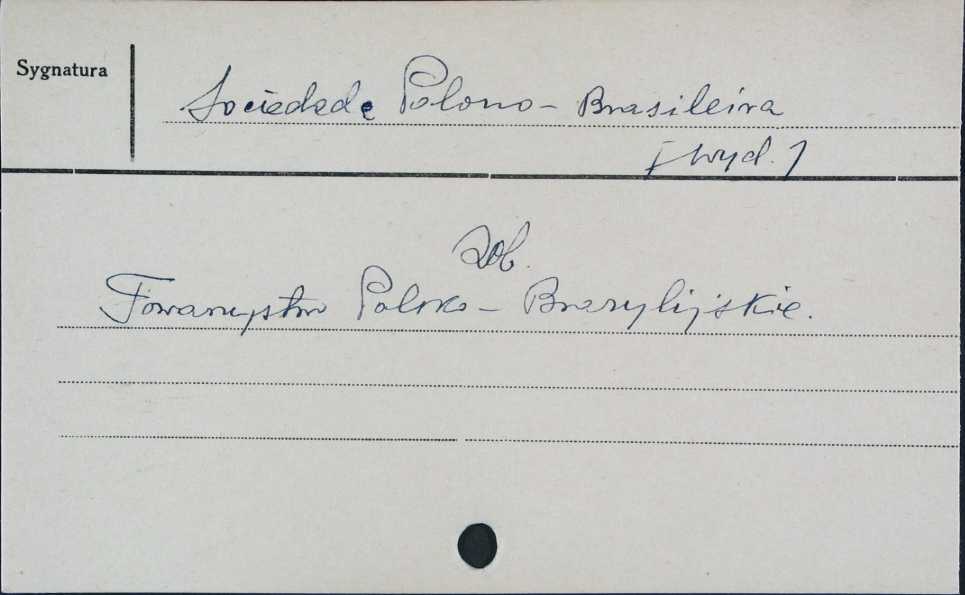 Sygnatura
Sociedade Polono - Brasileira
[wyd.]
Zob.
Towarzystwo Polsko - Brazylijskie.